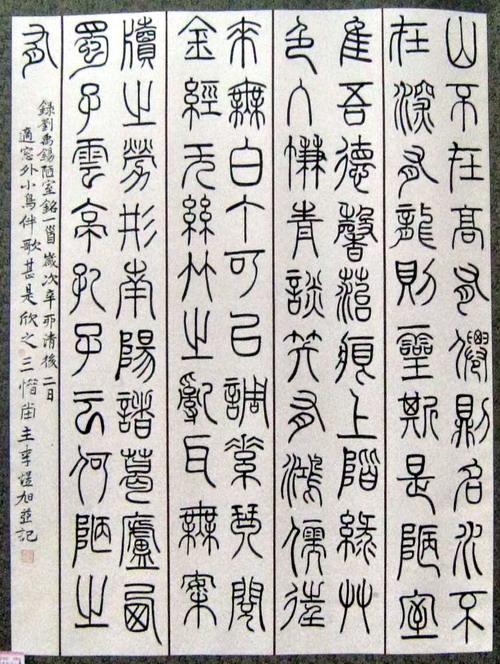 山不在高有僊則名水不
在深有龍則靈斯是陋室
惟吾德馨苔痕上階綠艸
色入簾青談笑有鴻儒往
來無白丁可以調素琴閱
金經无絲竹之亂耳無案
牘之勞形南陽諸葛廬西
蜀子雲亭孔子云何陋之
有
錄劉禹錫陋室銘一首歲次辛卯清後二日
適窓外小鳥伴歌甚是欣之三惜主李旭並記